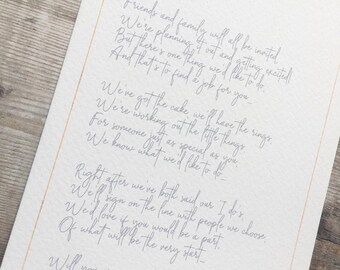 Friends and family will all be invited,
We're planning it out and getting excited!
But there's one thing we'd like to do,
And that's to find a job for you.
We've got the cake, we'll have the rings,
We're working out the little things
For someone just as special as you
We know what we'd like to do...
Right after we've both said our 'I do's,
We'll sign on the line with people we choose
We'd love if you would be a part,
Of what will be the very start...
Will you